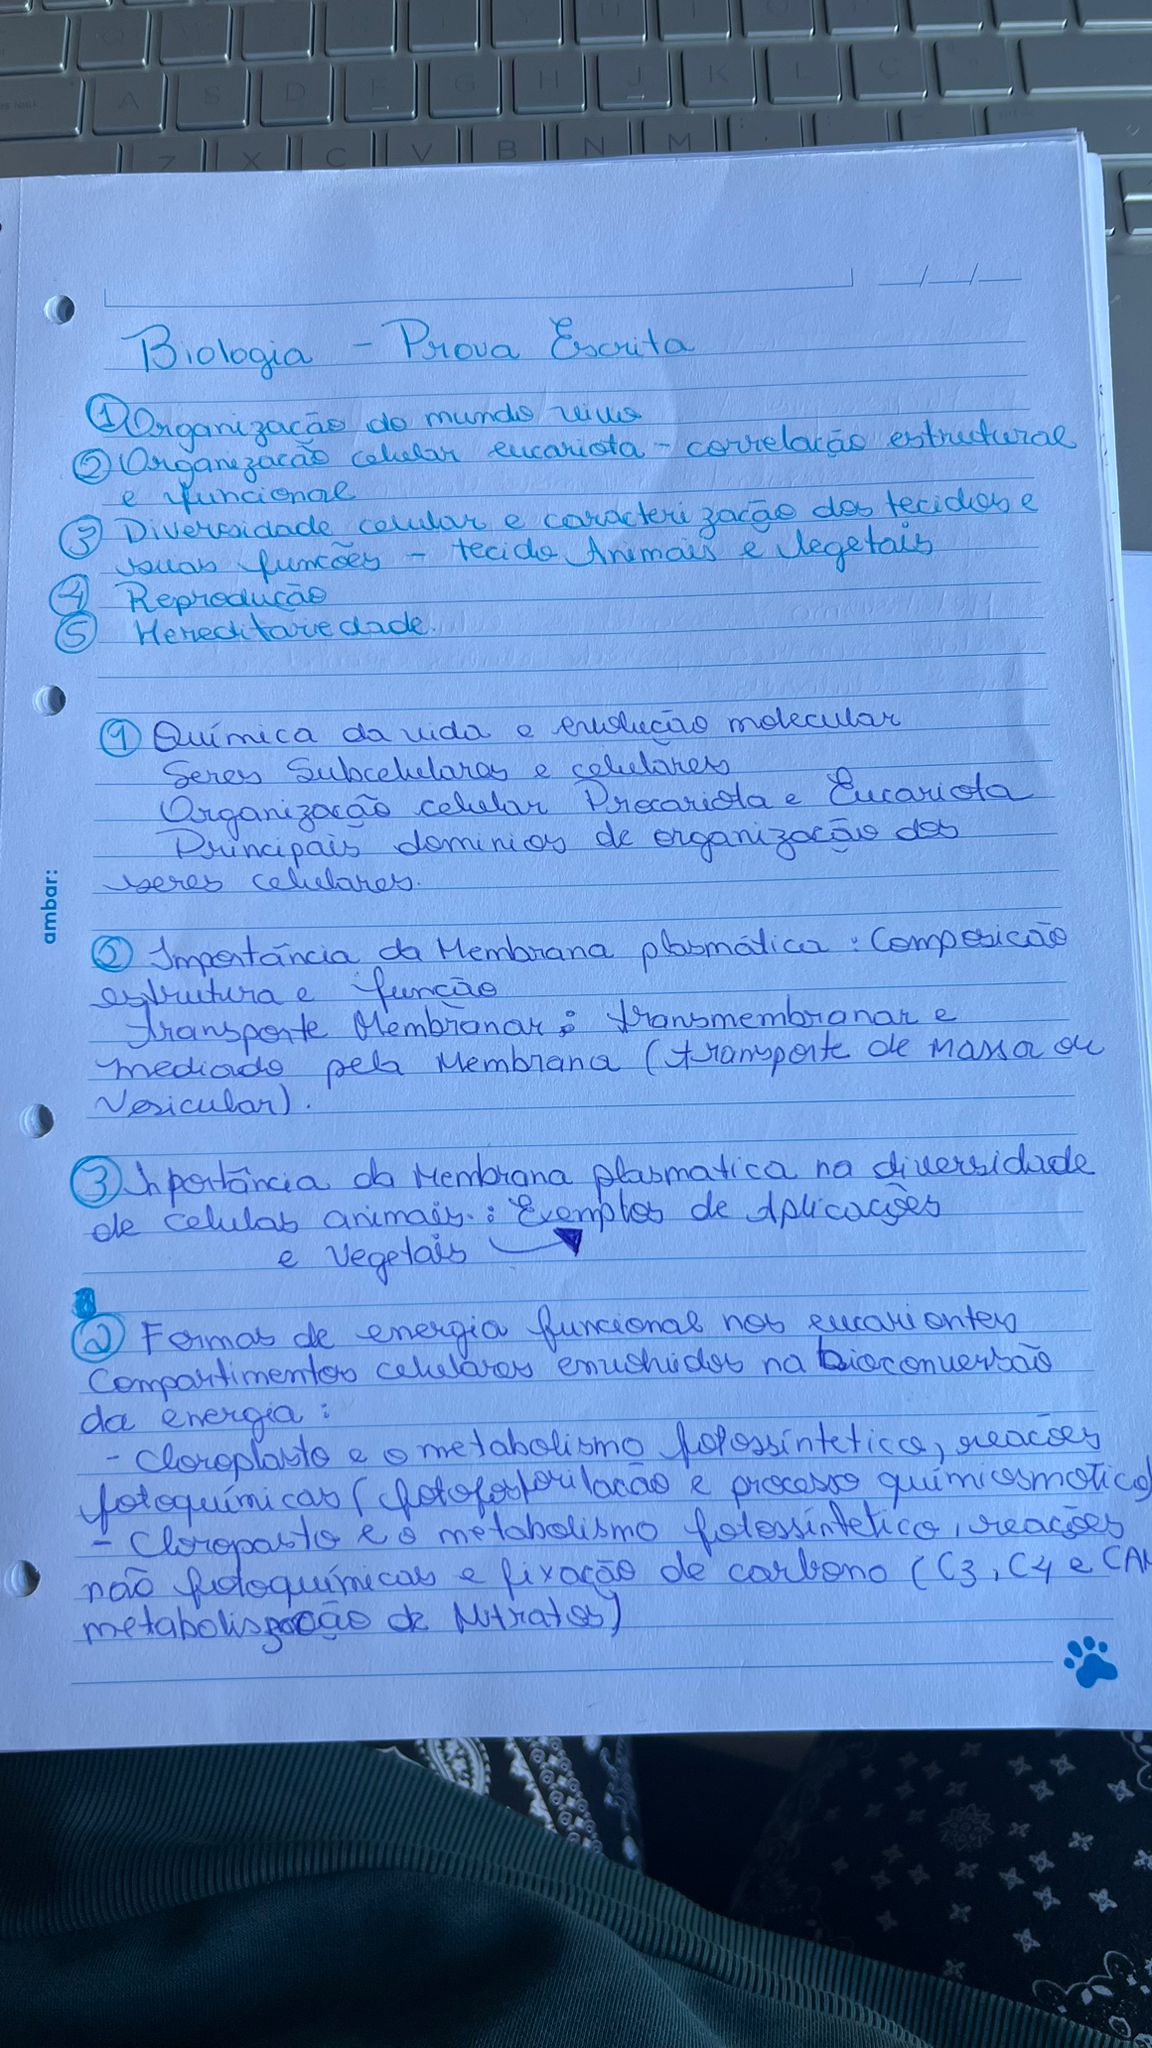 Biologia - Prova Escrita
① Organização do mundo vivo
② Organização celular eucariota - correlação estrutural
e funcional
③ Diversidade celular e caracterização dos tecidos e
suas funções - tecido Animais e Vegetais
④ Reprodução
⑤ Hereditariedade.
① Química da vida e evolução molecular
Seres Subcelulares e celulares
Organização celular Procariota e Eucariota
Principais dominios de organização dos
seres celulares.
② Importância da Membrana plasmática : Composição
estrutura e função
transporte Membranar : transmembranar e
mediado pela Membrana (transporte de massa ou
Vesicular).
③ Inportância da Membrana plasmatica na diversidade
de celulas animais. : Exemplos de Aplicações
e Vegetais
② Formas de energia funcional nos eucariontes
Compartimentos celulares envolvidos na bioconversão
da energia :
- Cloroplasto e o metabolismo fotossíntetico, reacões
fotoquímicas (fotofosforilacão e processo químiosmotico)
- Cloropasto e o metabolismo fotossíntetico, reacões
não fotoquímicas e fixação de carbono (C3, C4 e CAM
metabolização de Nitratos)
ambar:
A S D F G H J K L Ç
Z X C V B N M